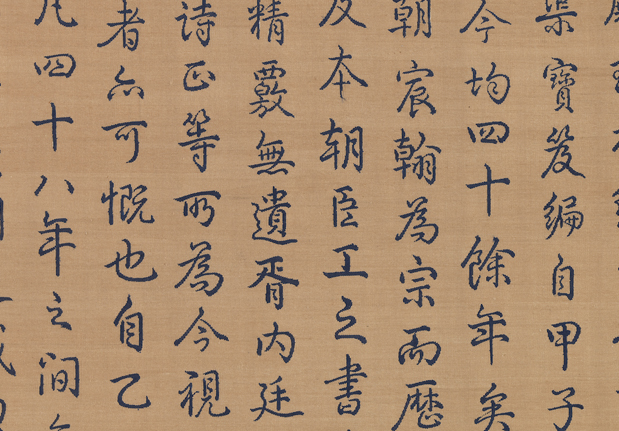 渠寶笈編自甲子
今均四十餘年矣
朝宸翰為宗而歷
及本朝臣工之書
精覈無遺胥内廷
詩正等所為今視
者亦可慨也自乙
凡四十八年之間